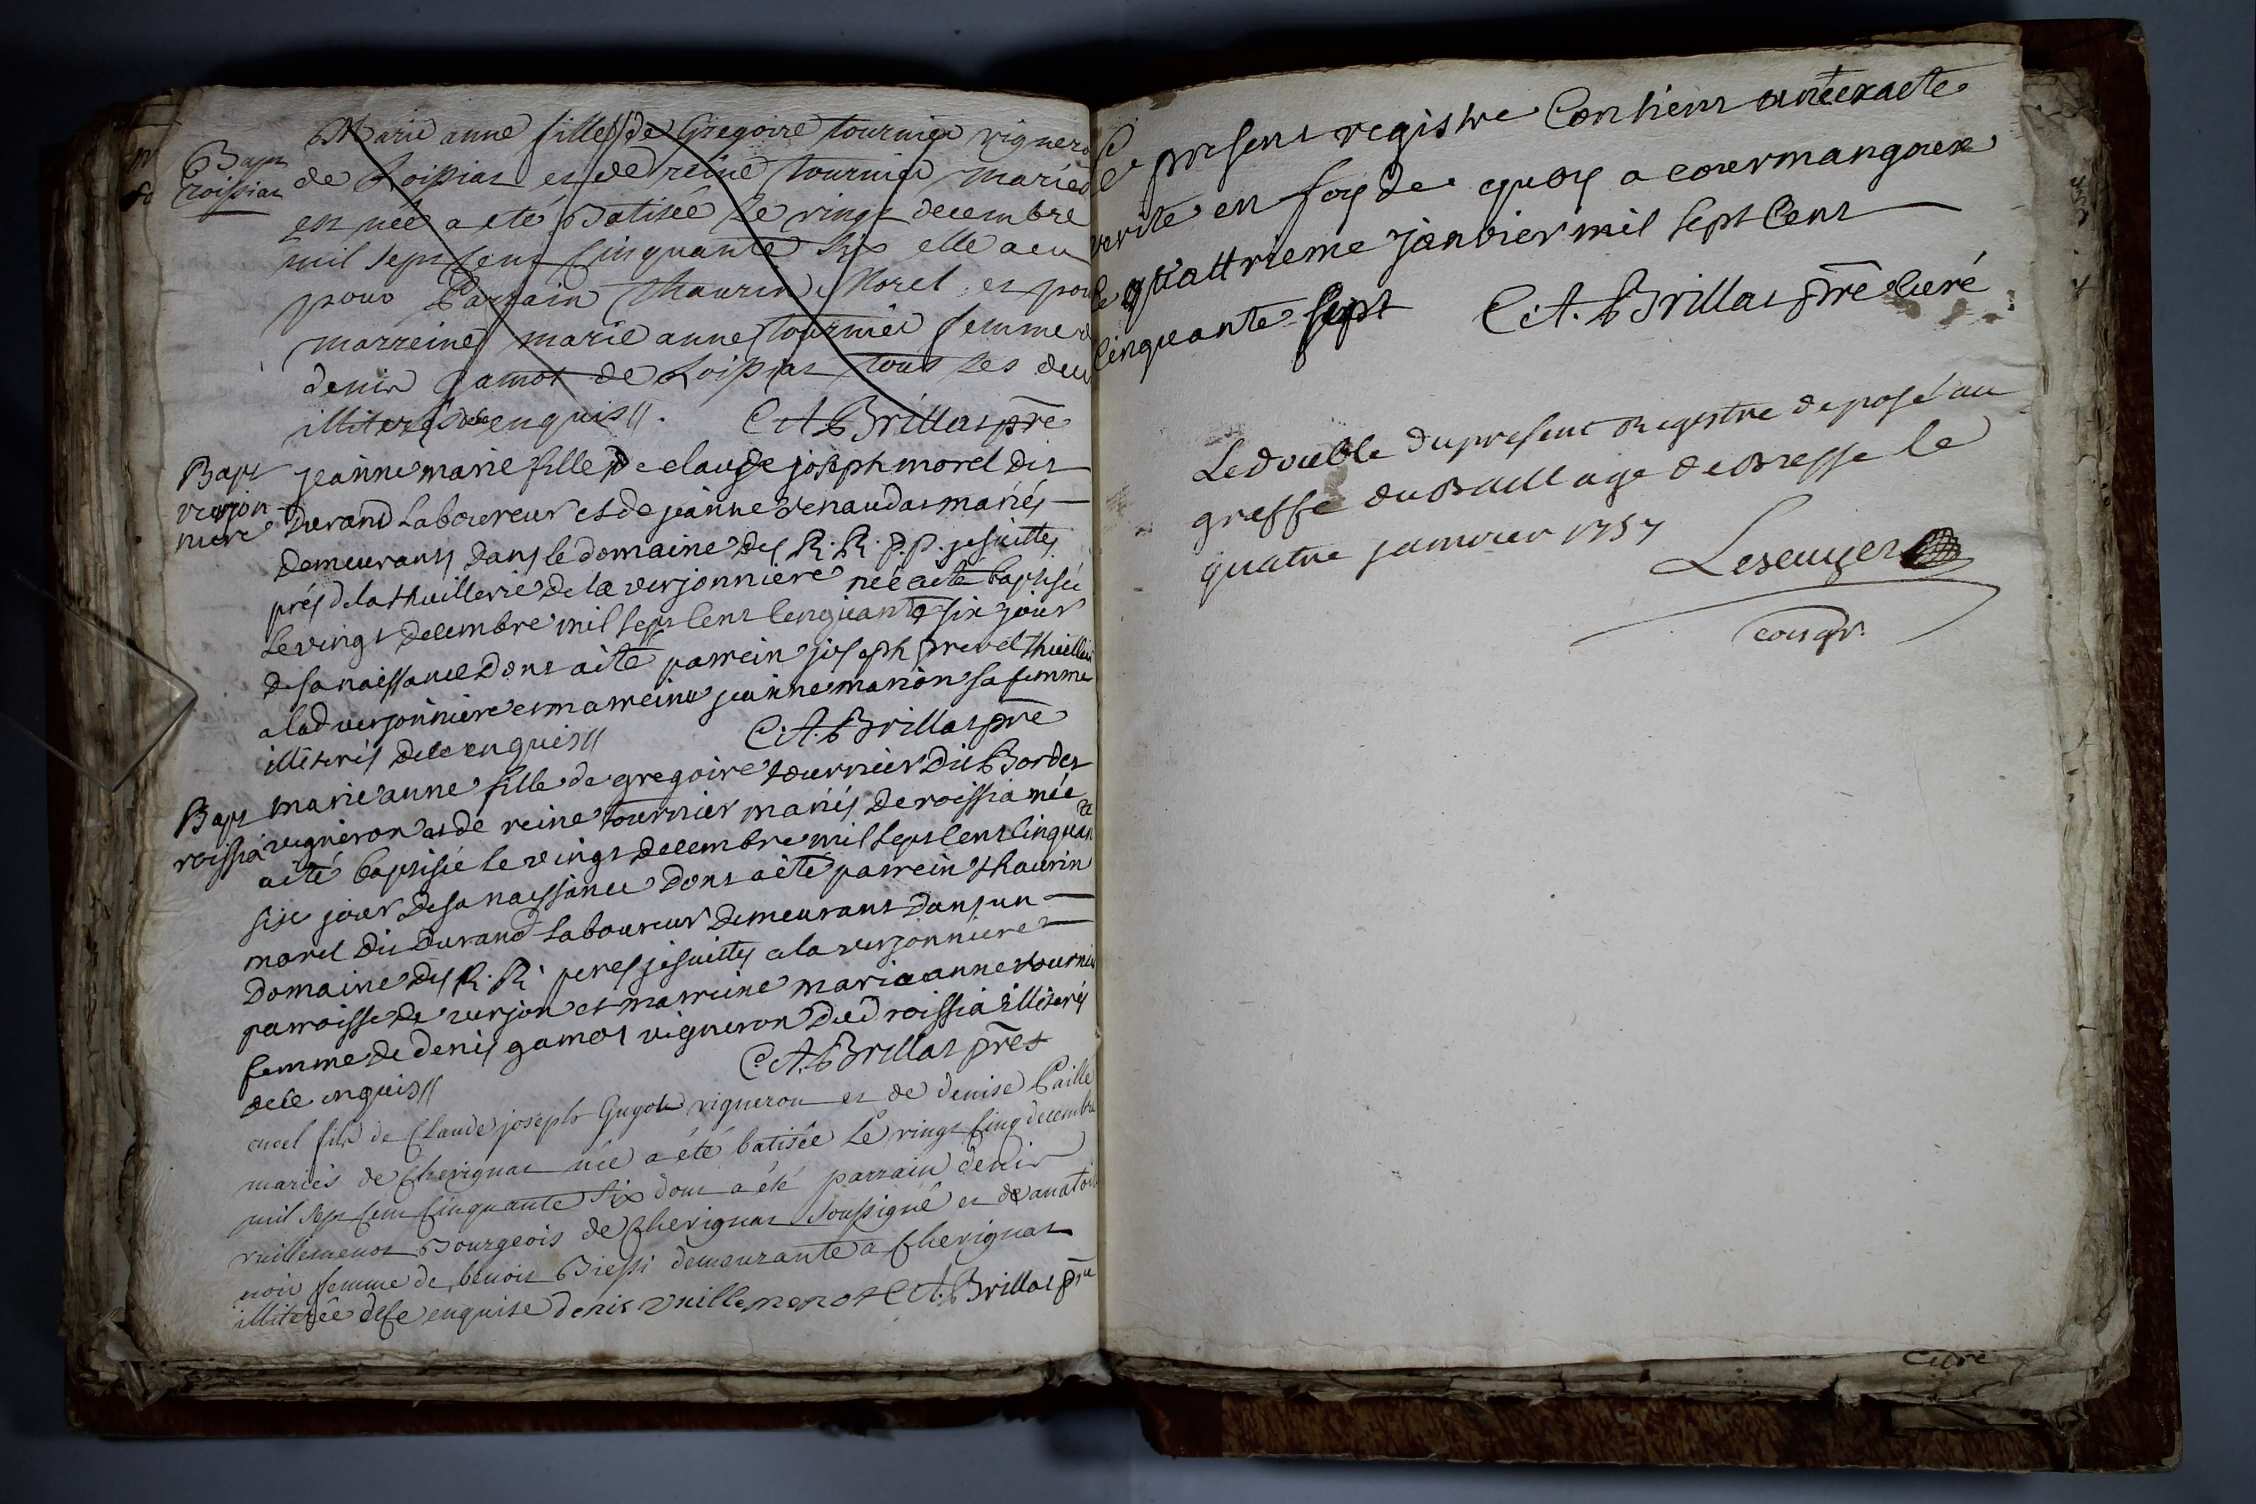 Bapt
roissiat
Marie anne fille de Gregoire tournier vigneron
de Roissiat et de reine tournier mariés
est née a eté Batisée le vingt decembre
mil sept cent cinquante six elle a eu
pour Parrain Thaurin Morel et pour
marreine marie anne tournier femme de
denis gamot de Roissiat tous les deux
illiterés de ce enquis //. C. A. Brillat pre
Bapt
verjon
niere
jeanne marie fille de claude joseph morel dit
Durand Laboureur et de jeanne renaudat mariés
Demeurants dans le domaine des R. R. P. P. jesuittes
prés de la thuillerie de la verjonniere née a eté baptisée
le vingt decembre mil sept cent cenquante six jour
de sa naissance dont a eté parrein joseph prevel thuillier
a lad verjonniere et marreine jeanne marion sa femme
illiterés de ce enquis // C. A. Brillat pre
Bapt
roissia
marie anne fille de gregoire tournier Dit Bordet
vigneron et de reine tournier mariés de roissia née
a eté baptisée le vingt decembre mil sept cent cinquante
six jour de sa naissance dont a eté parrein thaurin
morel dit Durand Laboureur Demeurant dans un
Domaine des R. R. peres jesuittes a la verjonniere
parroisse de verjon et marreine marie anne tournier
femme de denis gamot vigneron dud roissia illiterés
de ce enquis // C. A. Brillat pret
fils de Claude joseph Guyot vigneron et de denise Paille
mariés de Chevignat née a été batisée Le vingt cinq decembre
mil sept cent cinquante six dont a été parrain denis
vuillemenot Bourgeois de Chevignat soussigné et de anatoi
noir femme de benoit Biessi demeurante a chevignat
illiterée de ce enquise denis vuillemenot C. A. Brillat pre
Le present registre Contient une exacte
verité en foy de quoy a courmangoux
le quattrieme janvier mil sept Cent
cinquante sept C. A. Brillat pre Curé
Le double du present Registre deposé au
greffe du Baillage de Bresse le
quatre janvier 1757
curé